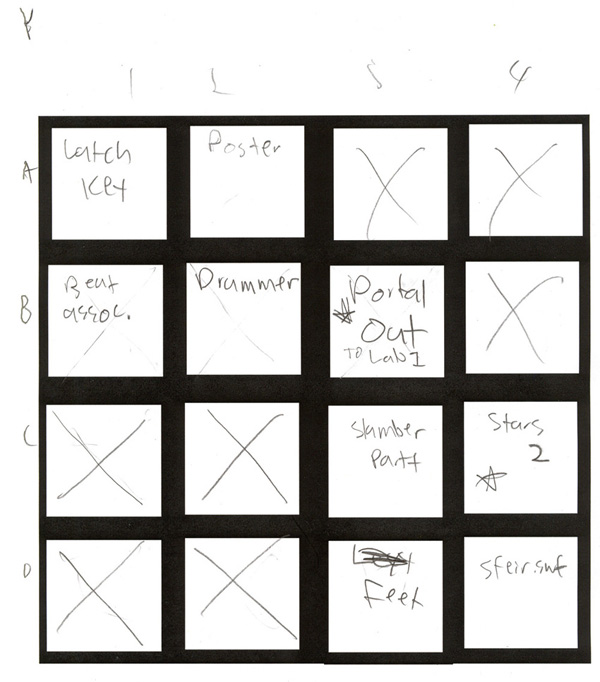 1 2 3 4
A
Latch
Key
Poster
B
Beat
assoc.
Drummer
Portal
Out
To Lab 1
C
Slumber
Party
Stars
2
D
Feet
sfeir.swf